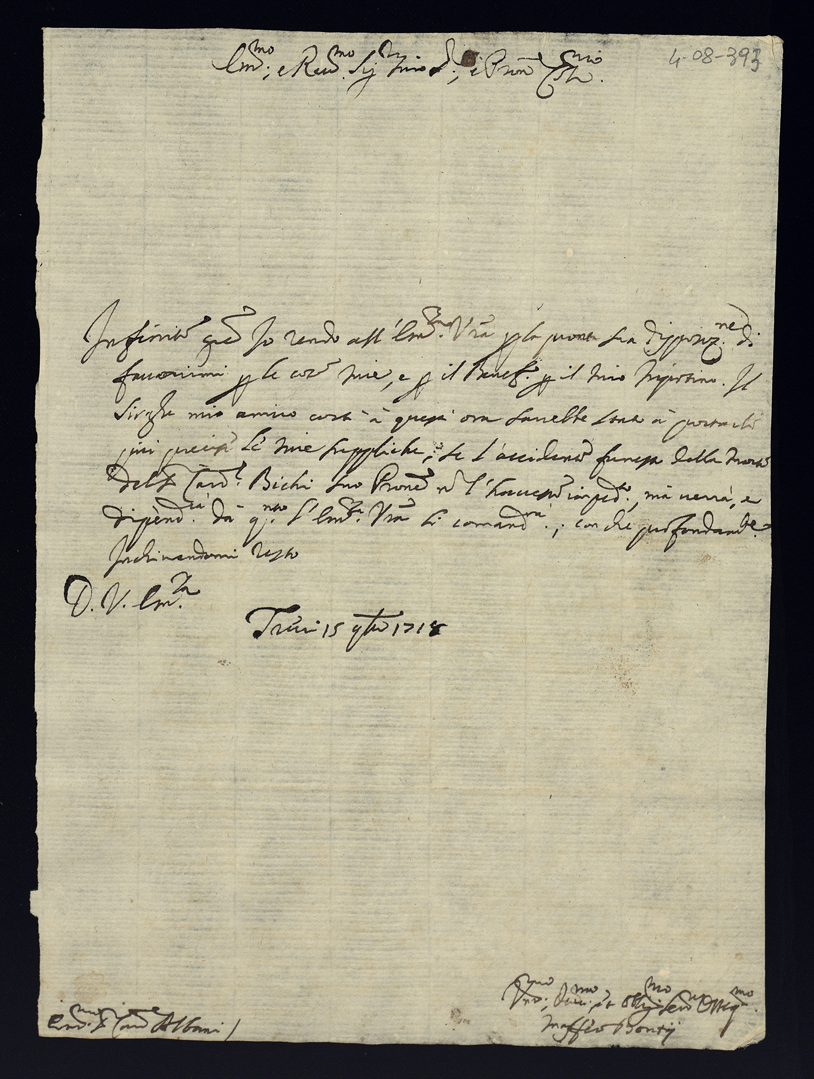 Em.mo, e Rev.mo Sig.r mio S.r, e Pron Col.mo
4-08-393
Infinite grãe Io rendo all'Em.za V.ra p la pronta sua disposiz.ne di
favorirmi p le cose mie, e p il Benef.o p il mio Nipotino. Il
mio amico costì à quest'ora sarebbe stato à portarle
più precise le mie suppliche, se l'accidente funesto della morte
del S. Card.e Bichi suo Prone nõ l'havesse imped.to, mà verrà, e
dipend.rà dà q.nto l'Em.za V.ra li comand.rà; con che profondam.te
Inchinandomi resto
D. V. Em.za
Trevi 15 9bre 1718
Em.mo S. Card.e Albani
Um.o, Dev.mo et Obl.mo Ser.re Osseq.mo
Maffeo Bontij